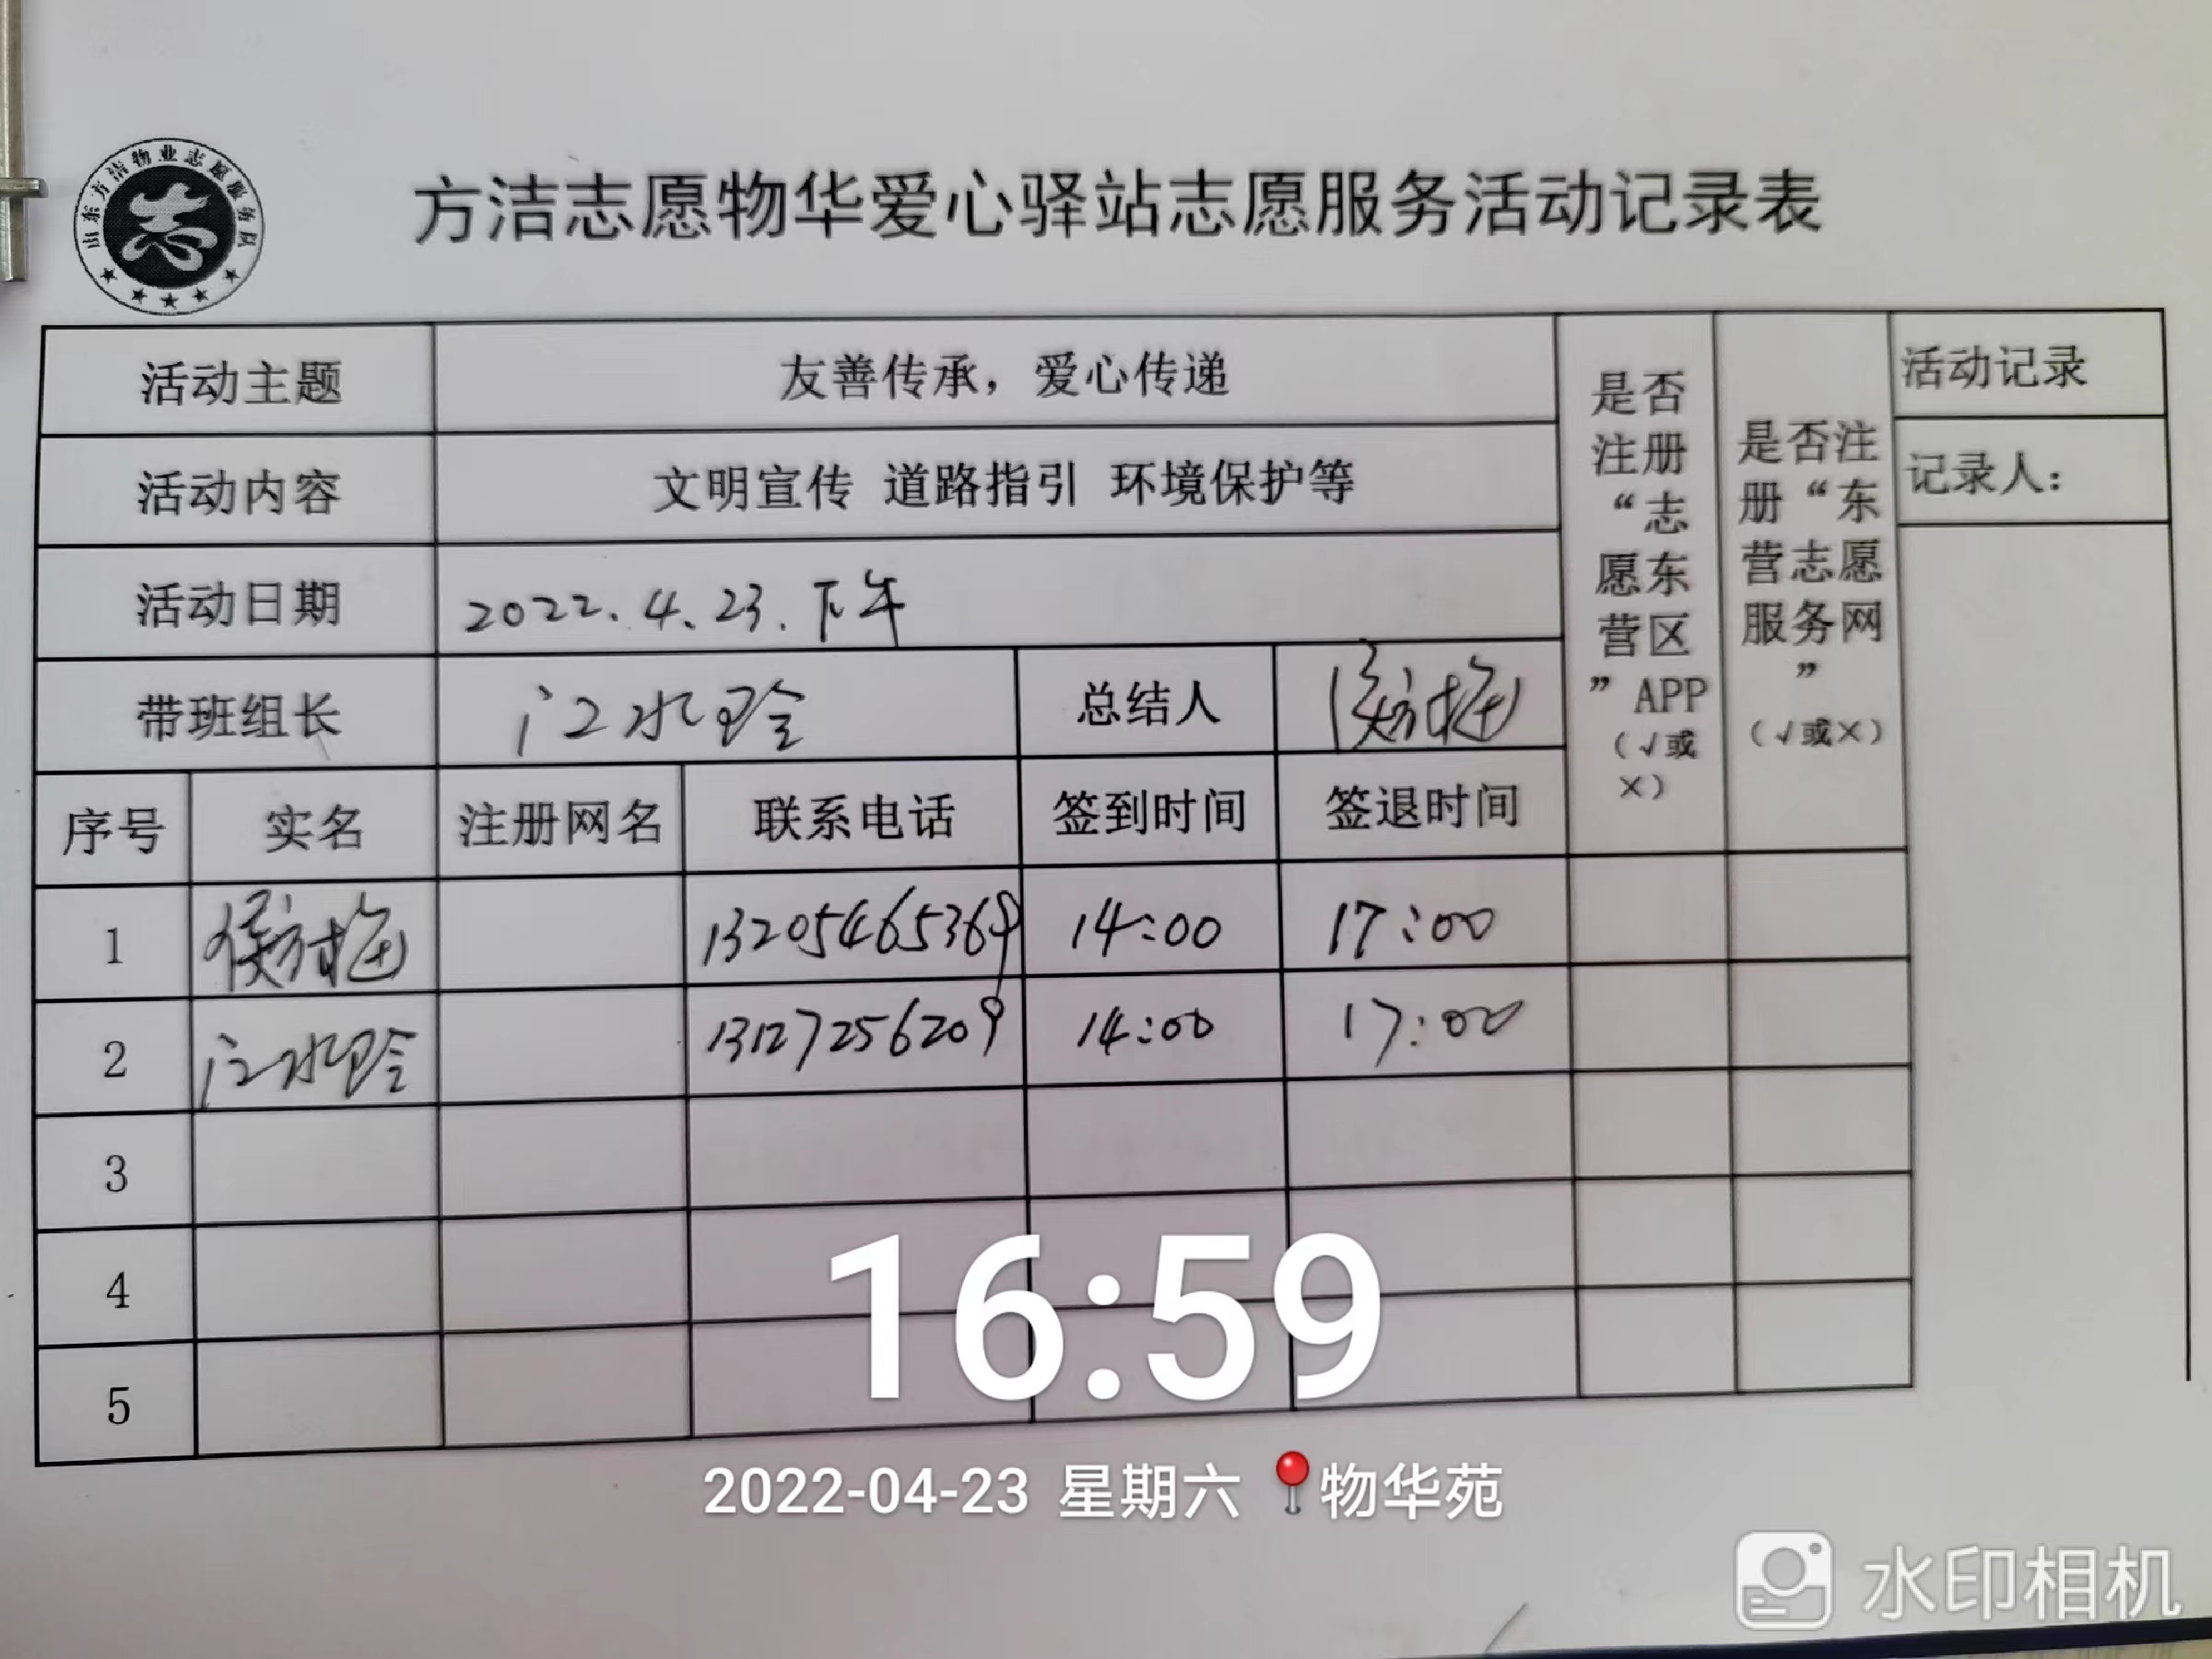 山东方洁物业志愿服务队
志
方洁志愿物华爱心驿站志愿服务活动记录表
活动主题 友善传承，爱心传递
活动内容 文明宣传 道路指引 环境保护等
活动日期 2022.4.23.下午
带班组长 江水玲 总结人 侯方梅
是否
注册
“志
愿东
营区
”APP
（√或
×）
是否注
册“东
营志愿
服务网
”
（√或×）
活动记录
记录人：
序号 实名 注册网名 联系电话 签到时间 签退时间
1 侯方梅 13205465369 14:00 17:00
2 江水玲 13127256209 14:00 17:00
3
4
5
16:59
2022-04-23 星期六 物华苑
水印相机